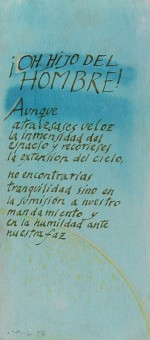 ¡OH HIJO DEL
HOMBRE!
Aunque
atravesases veloz
la inmensidad del
espacio y recorrieses
la extensión del cielo,
no encontrarías
tranquilidad sino en
la sumisión a nuestro
mandamiento y
en la humildad ante
nuestra faz